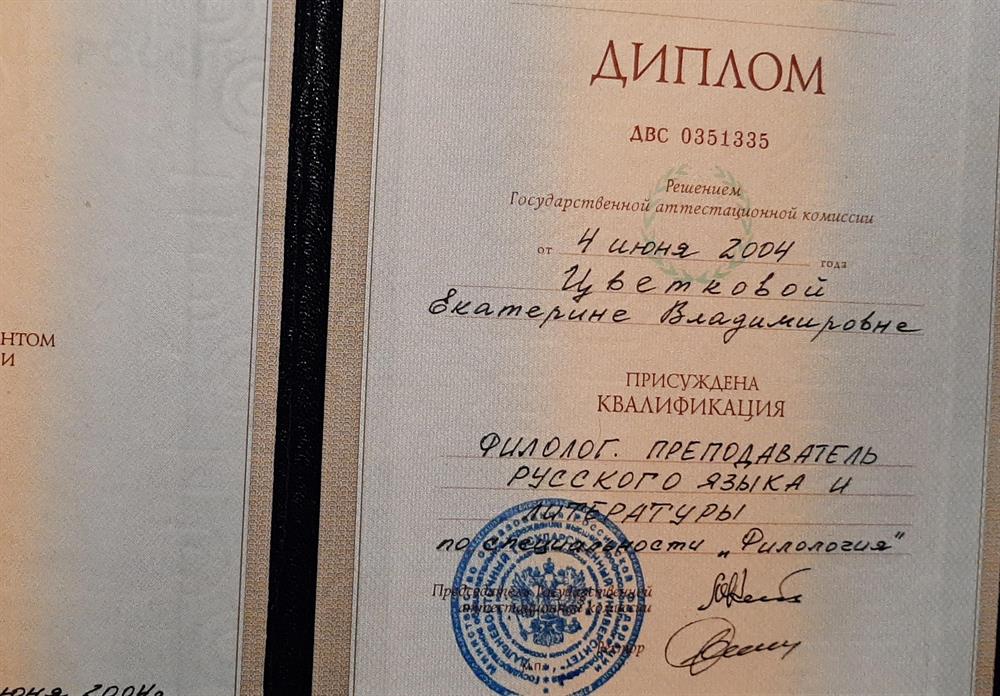 НТОМ
И
юня 2004г
ДИПЛОМ
ДВС 0351335
Решением
Государственной аттестационной комиссии
от 4 июня 2004 года
Цветковой
Екатерине Владимировне
ПРИСУЖДЕНА
КВАЛИФИКАЦИЯ
ФИЛОЛОГ. ПРЕПОДАВАТЕЛЬ
РУССКОГО ЯЗЫКА И
ЛИТЕРАТУРЫ
по специальности „Филология"
Председатель Государственной
аттестационной комиссии
Ректор
М.П.